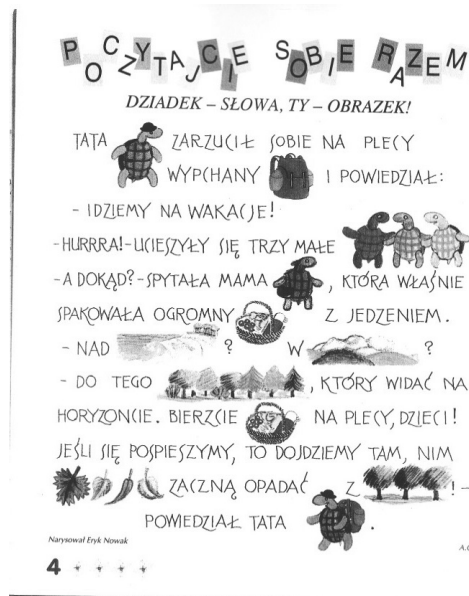 POCZYTAJCIE SOBIE RAZEM
DZIADEK – SŁOWA, TY – OBRAZEK!
TATA ZARZUCIŁ SOBIE NA PLECY
WYPCHANY I POWIEDZIAŁ:
- IDZIEMY NA WAKACJE!
-HURRRA!-UCIESZYŁY SIĘ TRZY MAŁE
-A DOKĄD?-SPYTAŁA MAMA , KTÓRA WŁAŚNIE
SPAKOWAŁA OGROMNY Z JEDZENIEM.
- NAD ? W ?
- DO TEGO , KTÓRY WIDAĆ NA
HORYZONCIE. BIERZCIE NA PLECY, DZIECI!
JEŚLI SIĘ POSPIESZYMY, TO DOJDZIEMY TAM, NIM
ZACZNĄ OPADAĆ Z !-
POWIEDZIAŁ TATA .
Narysował Eryk Nowak
4